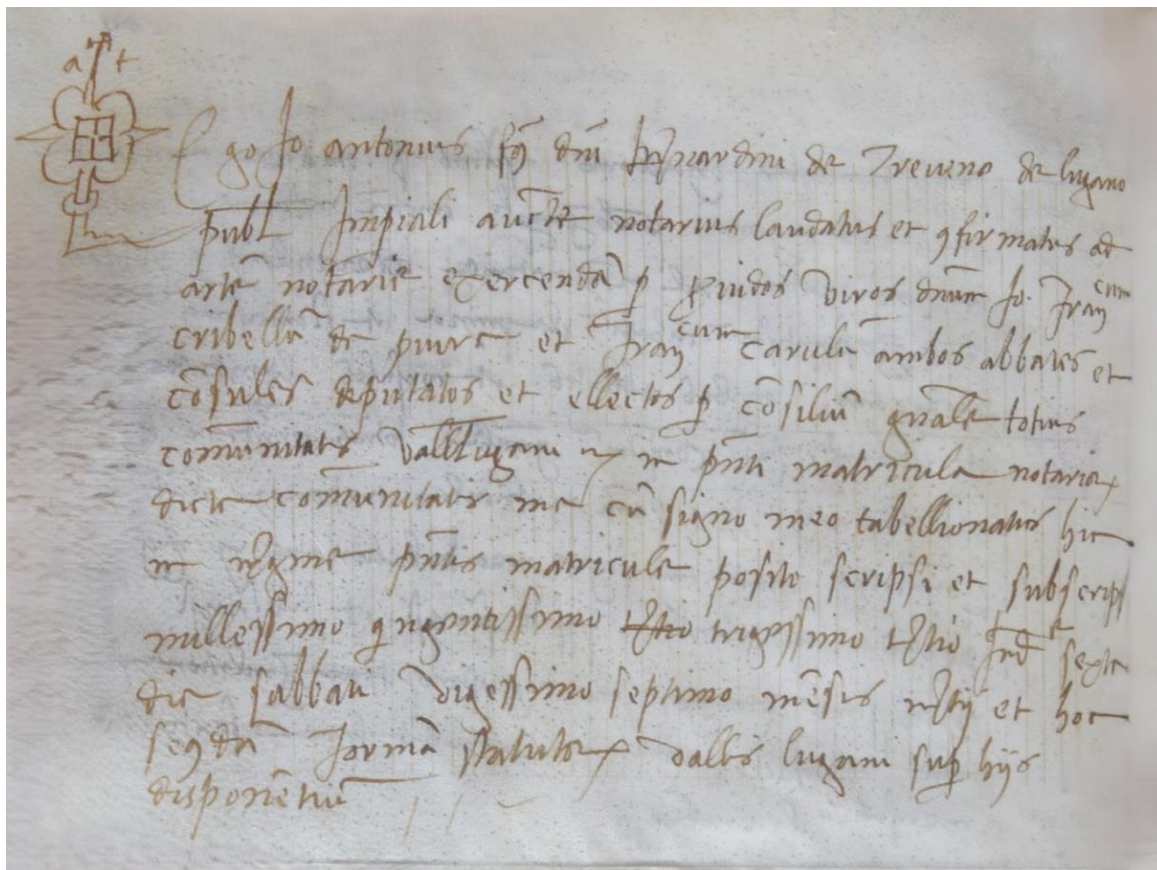 a t
Ego Jo. antonius fq̃ dñi b̃nardini de Treveno de lugano
publ̃ Impiali auc̃te notarius laudatus et ɔfirmatus ad
artẽ notariẽ exercendã ꝑ ꝓvidos viros dñum Jo. Franᶜᵘᵐ
cribellũ de et Franᶜᵘᵐ carulũ ambos abbates et
cõsules deputatos et ellectos ꝑ cõsiliũ gñale totius
comũnitatis Vall̃ Lugani in p̃nti matricula notarioꝝ
dicte comũnitatis me cũ signo meo tabellionatus hic
in m̃gine p̃ntis matricule posito scripsi et subscripsi
millessimo quingentissimo trigessimo t̃tio Ind̃ᵉ sexta
die sabbati vigessimo septimo mẽsis m̃tij et hoc
seɔdũ formã statutoꝝ vallis lugani suꝑ hijs
disponẽtiũ